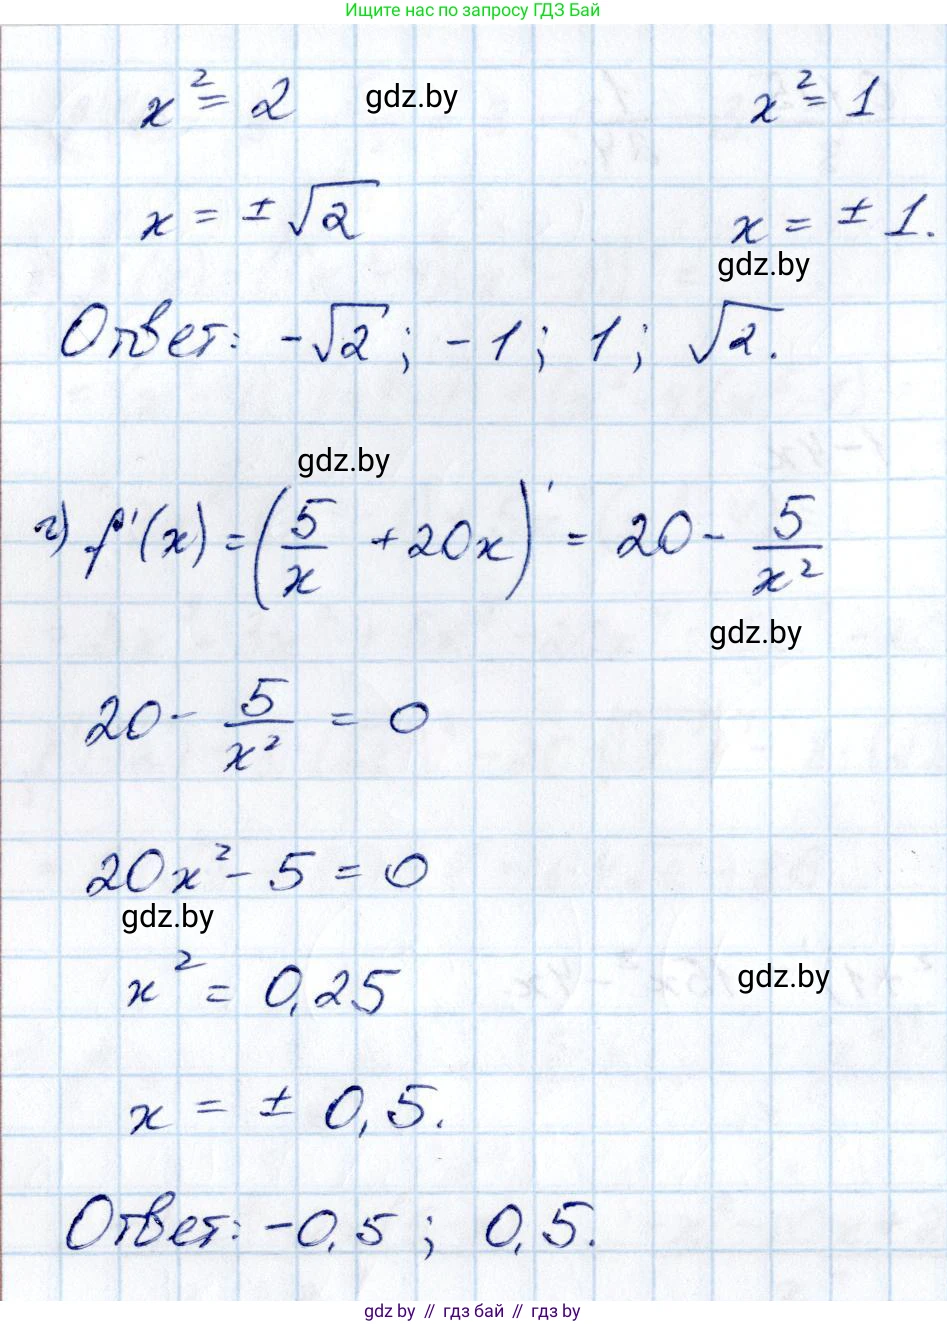 Ищите нас по запросу ГДЗ Бай
x² = 2 gdz.by x² = 1
x = ± √2 x = ± 1.
gdz.by
Ответ: -√2; -1; 1; √2.
gdz.by
г) f'(x) = (5/x + 20x)' = 20 - 5/x²
gdz.by
20 - 5/x² = 0
20x² - 5 = 0
gdz.by
x² = 0,25 gdz.by
x = ± 0,5.
Ответ: -0,5; 0,5.
gdz by // гдз бай // гдз by